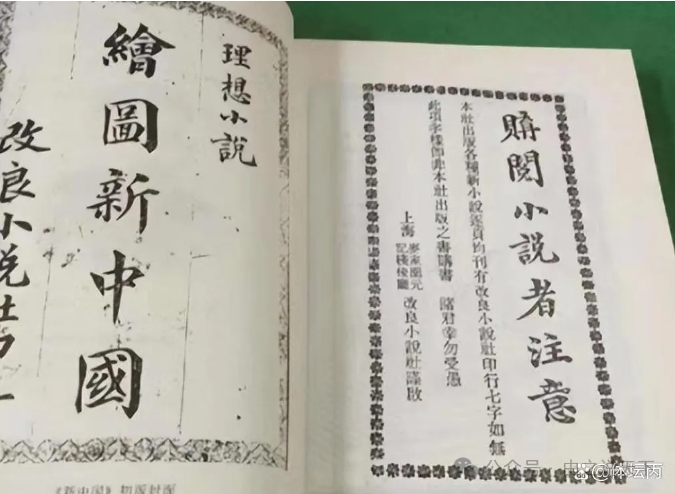 理想小說
繪圖新中國
改良小说社
《新中国》初版封面
購閱小說者注意
本社出版各種新小說逐頁均刊有改良小說社印行七字如無
此項字樣即非本社出版之書購書 諸君幸勿受愚
上海 麥家圈元記棧後廳 改良小說社謹啟
公众号
体坛丙